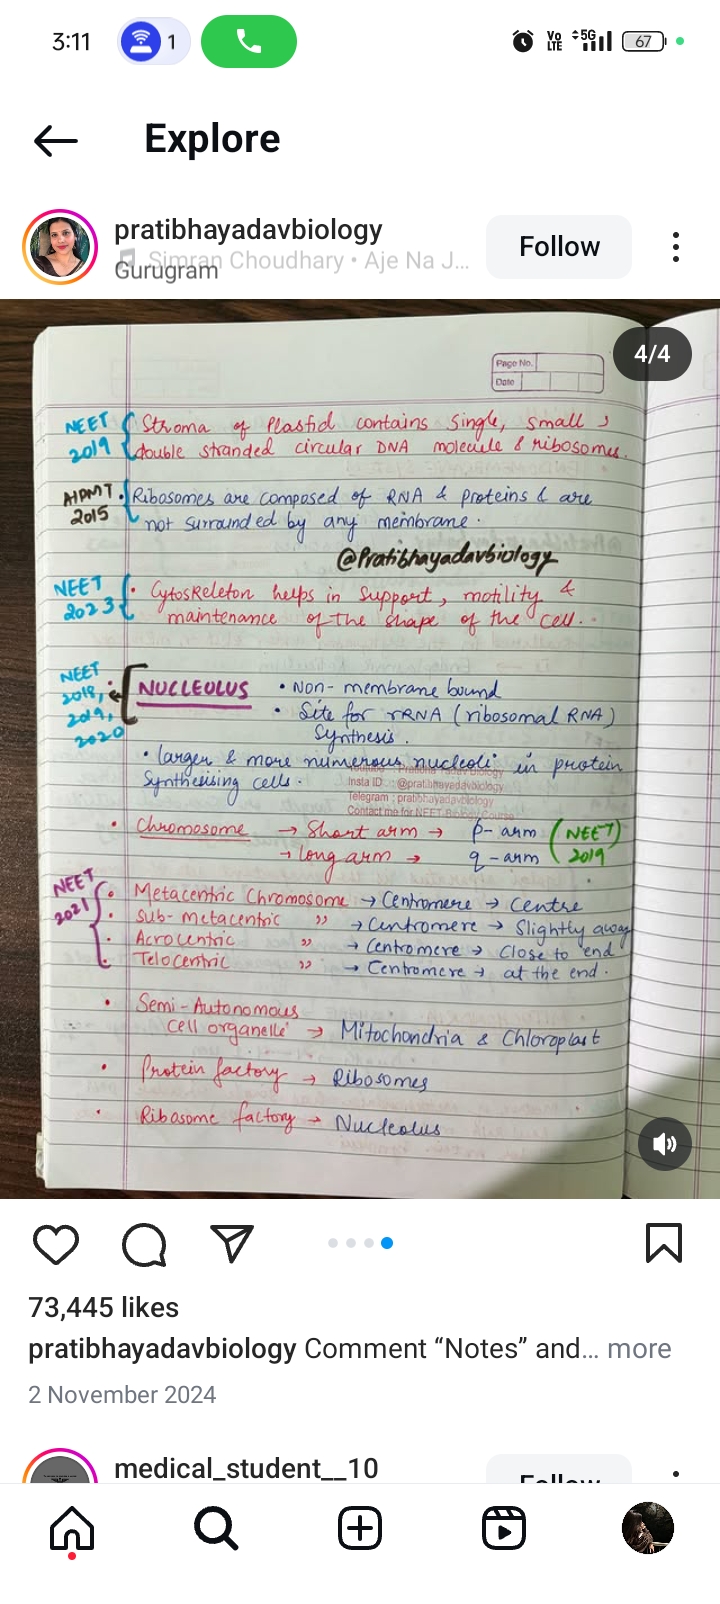 3:11
1
Vo
LTE
5G
67
Explore
pratibhayadavbiology
Simran Choudhary • Aje Na J...
Gurugram
Follow
4/4
Page No.
Date
NEET
2019
Stroma of Plastid contains Single, small,
double stranded circular DNA molecule & ribosomes.
AIPMT
2015
• Ribosomes are composed of RNA & proteins & are
not surrounded by any membrane.
@Pratibhayadavbiology
NEET
2023
• Cytoskeleton helps in Support, motility &
maintenance of the shape of the cell.
NEET
2018,
2019,
2020
NUCLEOLUS
• Non-membrane bound
• Site for rRNA (ribosomal RNA)
Synthesis.
• larger & more numerous nucleoli in protein
Synthesising cells.
Youtube : Pratibha Yadav Biology
Insta ID : @pratibhayadavbiology
Telegram : pratibhayadavbiology
Contact me for NEET Biology Course
• Chromosome → Short arm → p-arm
→ long arm → q-arm
(NEET)
2019
NEET
2021
• Metacentric Chromosome → Centromere → Centre
• Sub-metacentric " → Centromere → Slightly away
• Acrocentric " → Centromere → Close to end
• Telocentric " → Centromere → at the end.
• Semi-Autonomous
cell organelle → Mitochondria & Chloroplast
• Protein factory → Ribosomes
• Ribosome factory → Nucleolus
73,445 likes
pratibhayadavbiology Comment “Notes” and... more
2 November 2024
medical_student__10
Follow